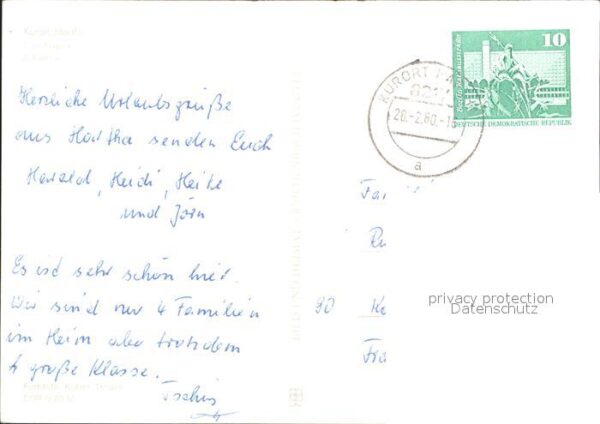 Kurort Hartha
Herzliche Urlaubsgrüße
aus Hartha senden Euch
Harald, Heidi, Heike
und Jörn
Es ist sehr schön hier.
Wir sind nur 4 Familien
im Heim aber trotzdem
große Klasse.
Tschüs
10
DEUTSCHE DEMOKRATISCHE REPUBLIK
KURORT HA
20.-2.80.-15
a
Fa
Ru
90 Ke
Fra
privacy protection
Datenschutz